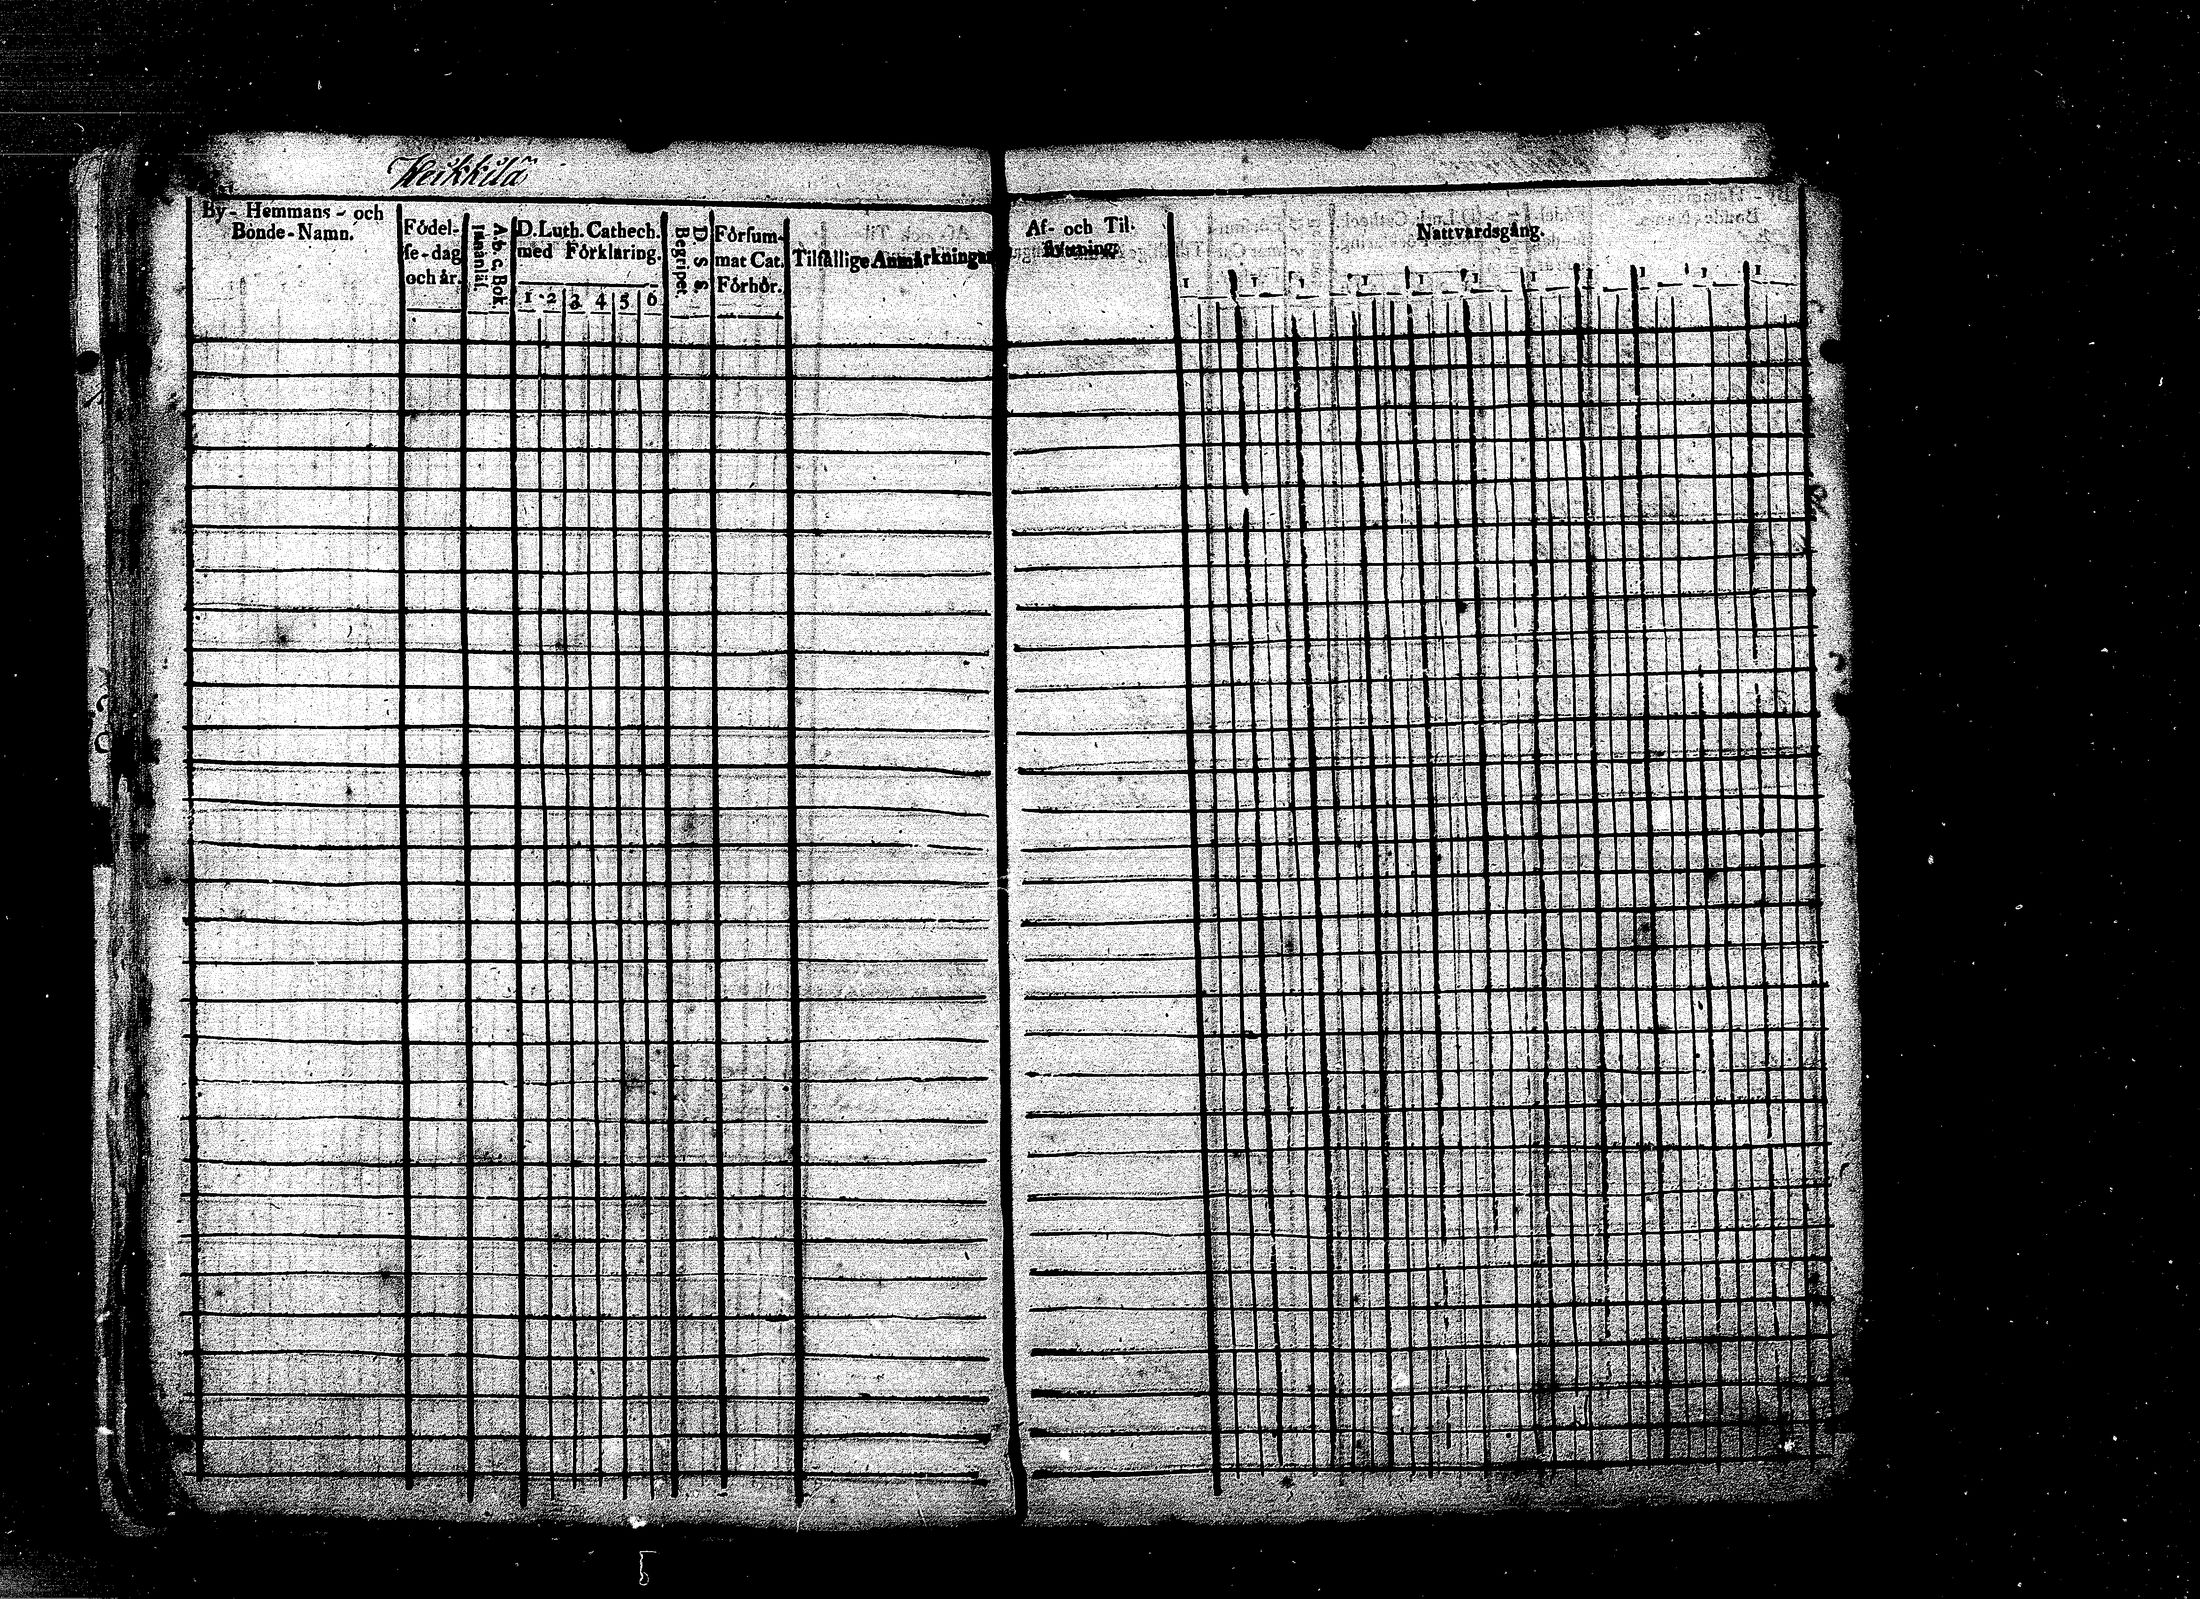 Heikkilä
By- Hemmans- och
Bonde-Namn.
Födel-
se-dag
och år.
A. b. c. Bok
innanläs.
D. Luth. Cathech.
med Förklaring.
1 2 3 4 5 6
D. S. S.
Begripet.
Försum-
mat Cat.
Förhör.
Tilfällige Anmärkningar
Af- och Til-
flyttning.
Nattvardsgång.
1 1 1 1 1 1 1 1 1 1 1